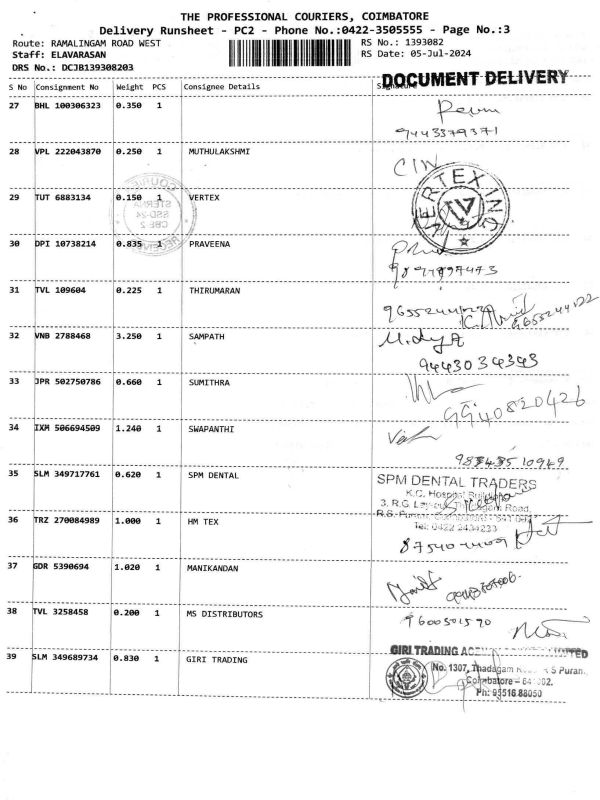 THE PROFESSIONAL COURIERS, COIMBATORE
Delivery Runsheet - PC2 - Phone No.:0422-3505555 - Page No.:3
Route: RAMALINGAM ROAD WEST RS No.: 1393082
Staff: ELAVARASAN RS Date: 05-Jul-2024
DRS No.: DCJB139308203
DOCUMENT DELIVERY
S No Consignment No Weight PCS Consignee Details
27 BHL 100306323 0.350 1
9443379371
28 VPL 222043870 0.250 1 MUTHULAKSHMI
29 TUT 6883134 0.150 1 VERTEX
VERTEX ING
30 DPI 10738214 0.835 1 PRAVEENA
31 TVL 109604 0.225 1 THIRUMARAN
9655244122
32 VNB 2788468 3.250 1 SAMPATH
9443034343
33 JPR 502750786 0.660 1 SUMITHRA
34 IXM 506694509 1.240 1 SWAPANTHI
35 SLM 349717761 0.620 1 SPM DENTAL
SPM DENTAL TRADERS
K.C. Hospital Building
Tel: 0422 2434233
36 TRZ 270084989 1.000 1 HM TEX
37 GDR 5390694 1.020 1 MANIKANDAN
38 TVL 3258458 0.200 1 MS DISTRIBUTORS
9600501590
39 SLM 349689734 0.830 1 GIRI TRADING
GIRI TRADING
No. 1307, Thadagam R S Puram,
Coimbatore
Ph: 95516 88050